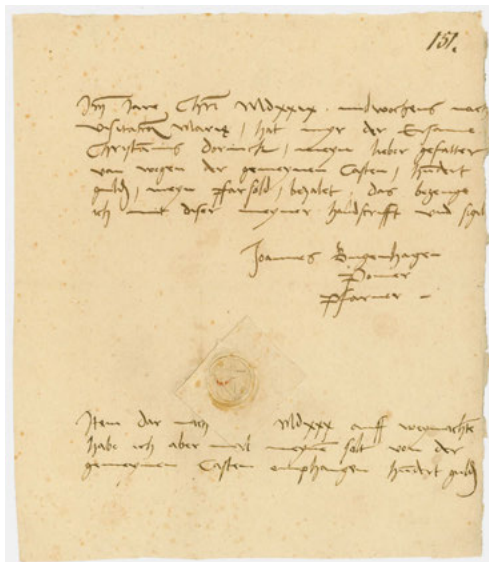 151.
Im Jare Christi MDxxix. midwochens nach
Visitationis Marie / hat myr der Ersame
Christianus Dorinck / meyn lieber gefatter
von wegen der gemeynen Casten / hundert
guld / meyn pfarsold / bezalet. das bezeuge
ich mit diser meyner handscrifft und sigel
Joannes Bugenhagen
Pomer
Pfarner
Item dar nach MDxxx auff weynachte
habe ich aber mal meynen solt von der
gemeynen Casten emphangen hundert guld